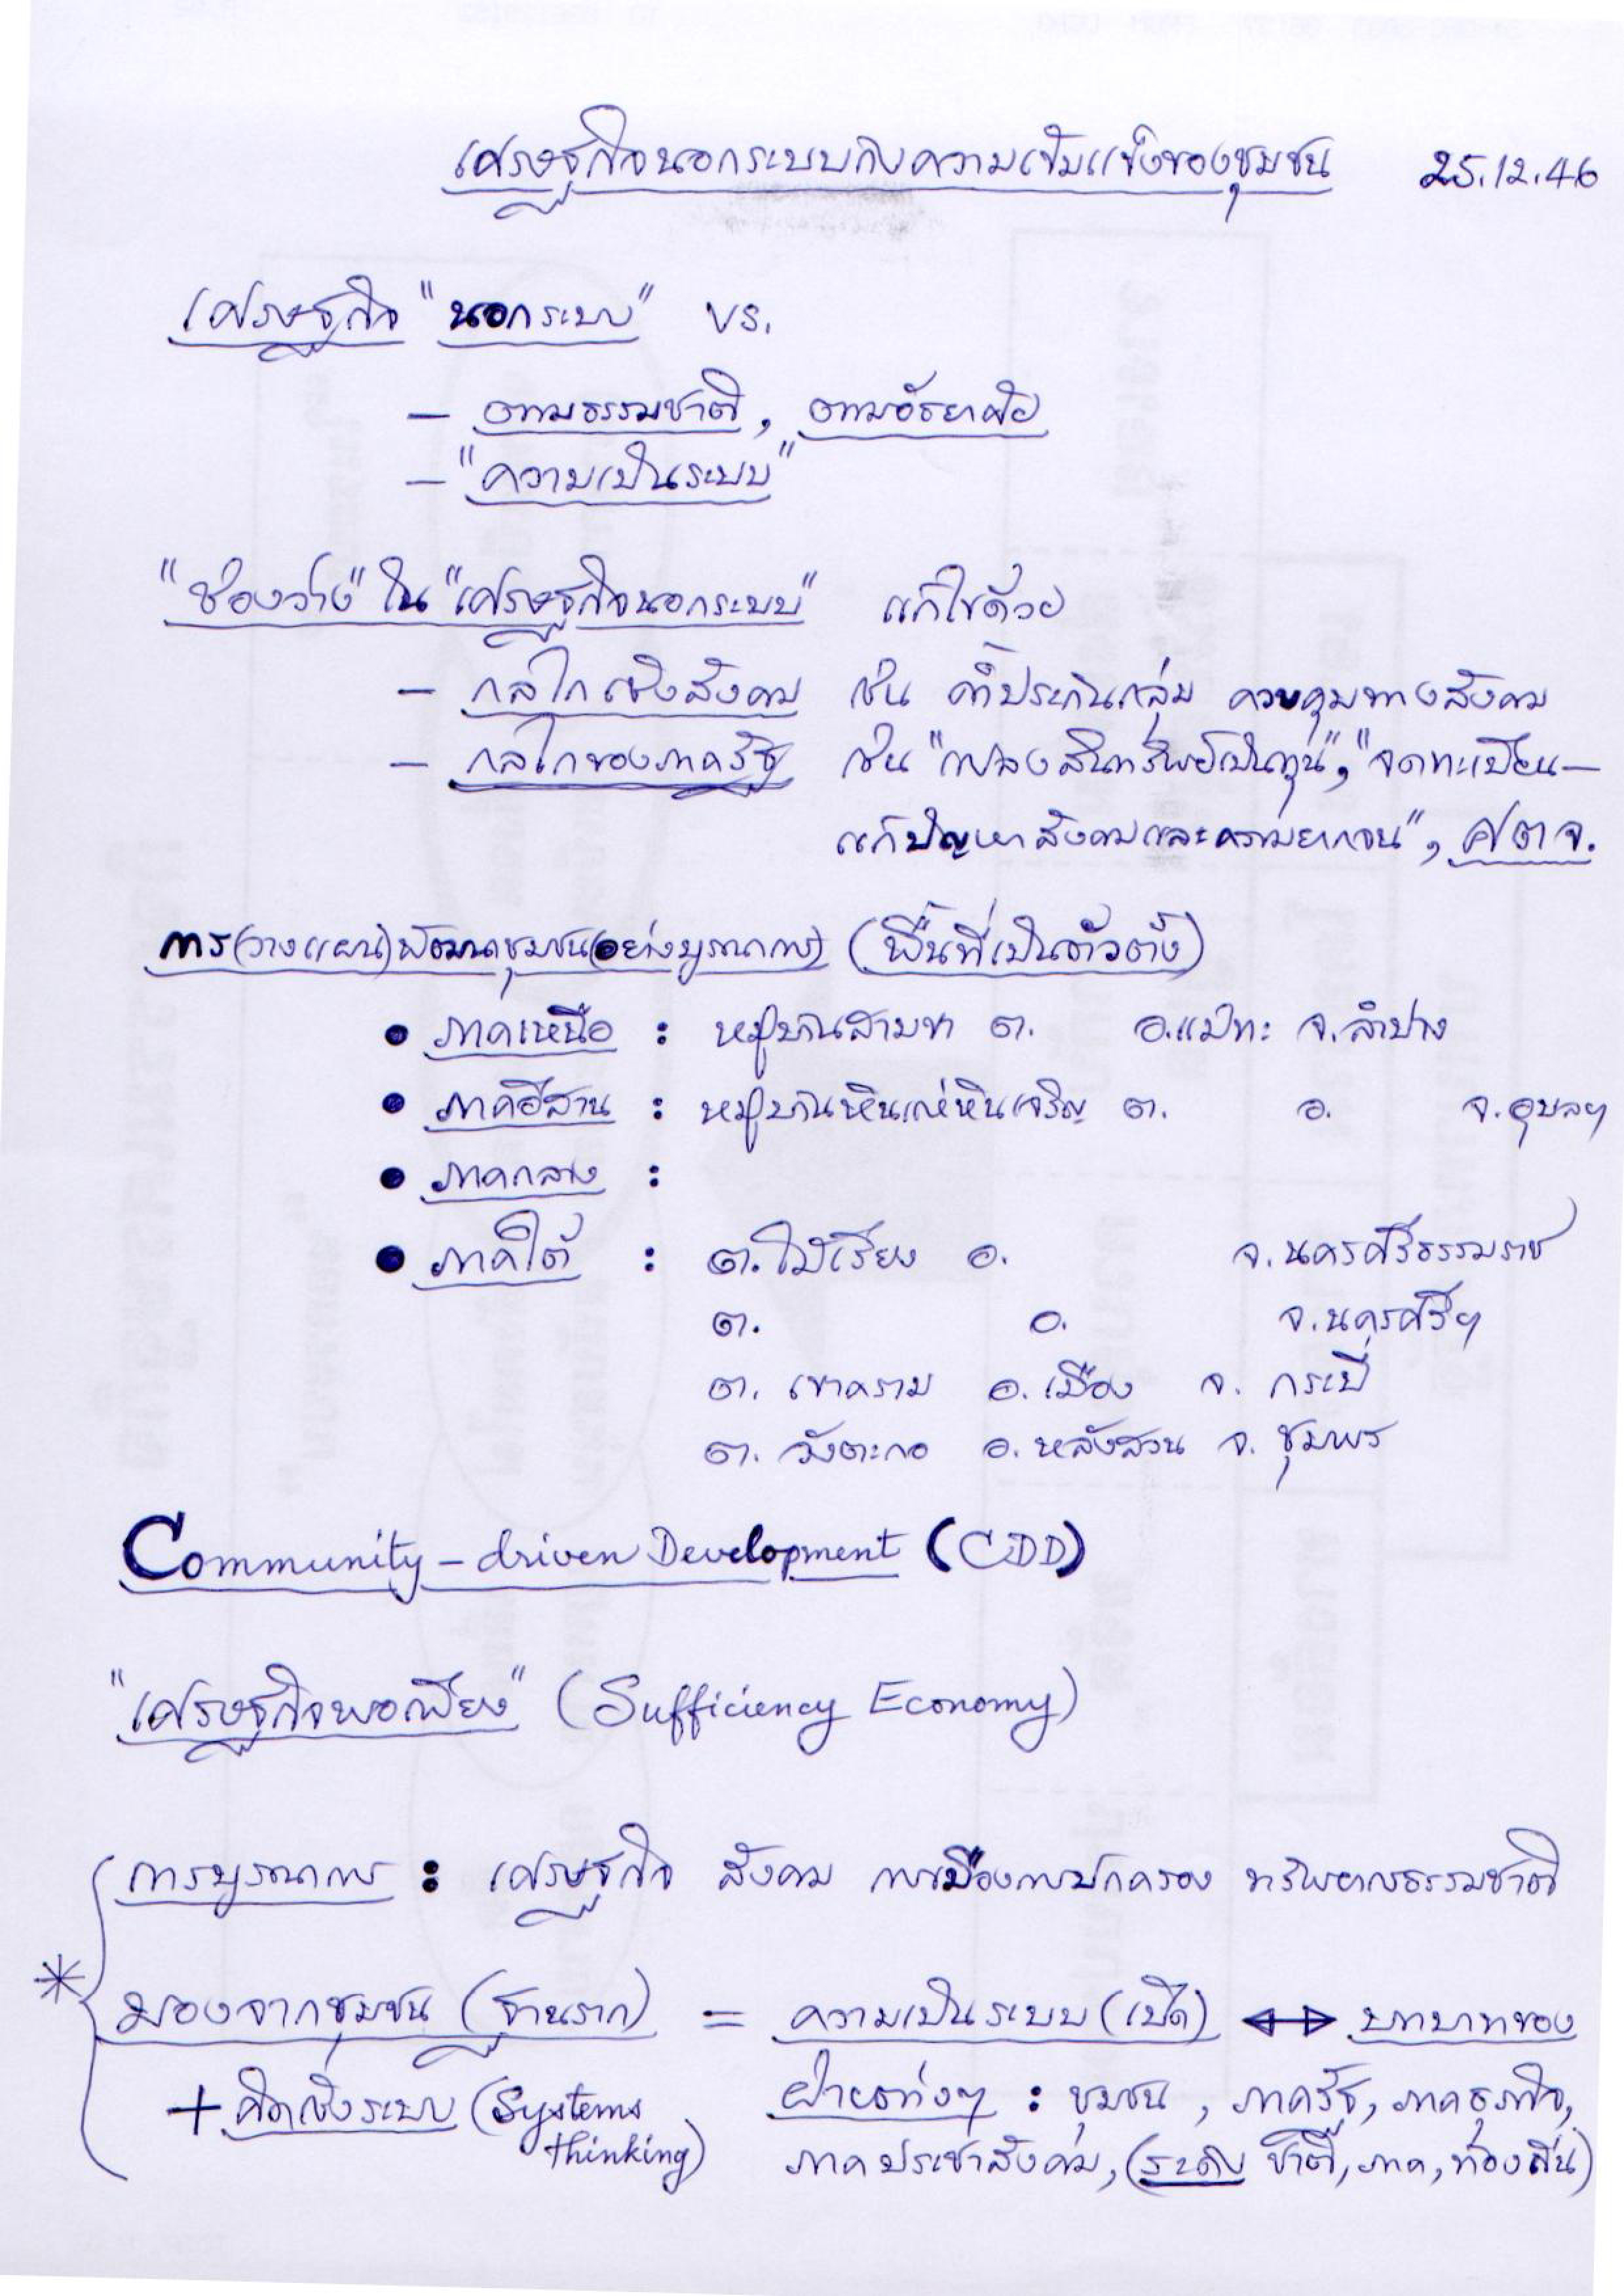 เศรษฐกิจนอกระบบกับความเข้มแข็งของชุมชน 25.12.46
เศรษฐกิจ "นอกระบบ" vs.
– ตามธรรมชาติ, ตามอัธยาศัย
– "ความเป็นระบบ"
"ช่องว่าง" ใน "เศรษฐกิจนอกระบบ" แก้ไขด้วย
– กลไกเชิงสังคม เช่น ค้ำประกันกลุ่ม ควบคุมทางสังคม
– กลไกของภาครัฐ เช่น "แปลงสินทรัพย์เป็นทุน", "จดทะเบียน–
แก้ปัญหาสังคมและความยากจน", ศตจ.
การ(วางแผน)พัฒนาชุมชน(อย่างบูรณาการ) (พื้นที่เป็นตัวตั้ง)
• ภาคเหนือ : หมู่บ้านสามขา ต. อ.แม่ทะ จ.ลำปาง
• ภาคอีสาน : หมู่บ้านหินแห่หินเจริญ ต. อ. จ.อุบลฯ
• ภาคกลาง :
• ภาคใต้ : ต.ไม้เรียง อ. จ.นครศรีธรรมราช
ต. อ. จ.นครศรีฯ
ต. เขาคราม อ. เมือง จ. กระบี่
ต. วังตะกอ อ. หลังสวน จ. ชุมพร
Community – driven Development (CDD)
"เศรษฐกิจพอเพียง" (Sufficiency Economy)
การบูรณาการ : เศรษฐกิจ สังคม การเมืองการปกครอง ทรัพยากรธรรมชาติ
* มองจากชุมชน (ฐานราก) = ความเป็นระบบ (เปิด) ↔ บทบาทของ
+ คิดเชิงระบบ (Systems ฝ่ายต่างๆ : ชุมชน, ภาครัฐ, ภาคธุรกิจ,
thinking) ภาคประชาสังคม, (ระดับ ชาติ, ภาค, ท้องถิ่น)